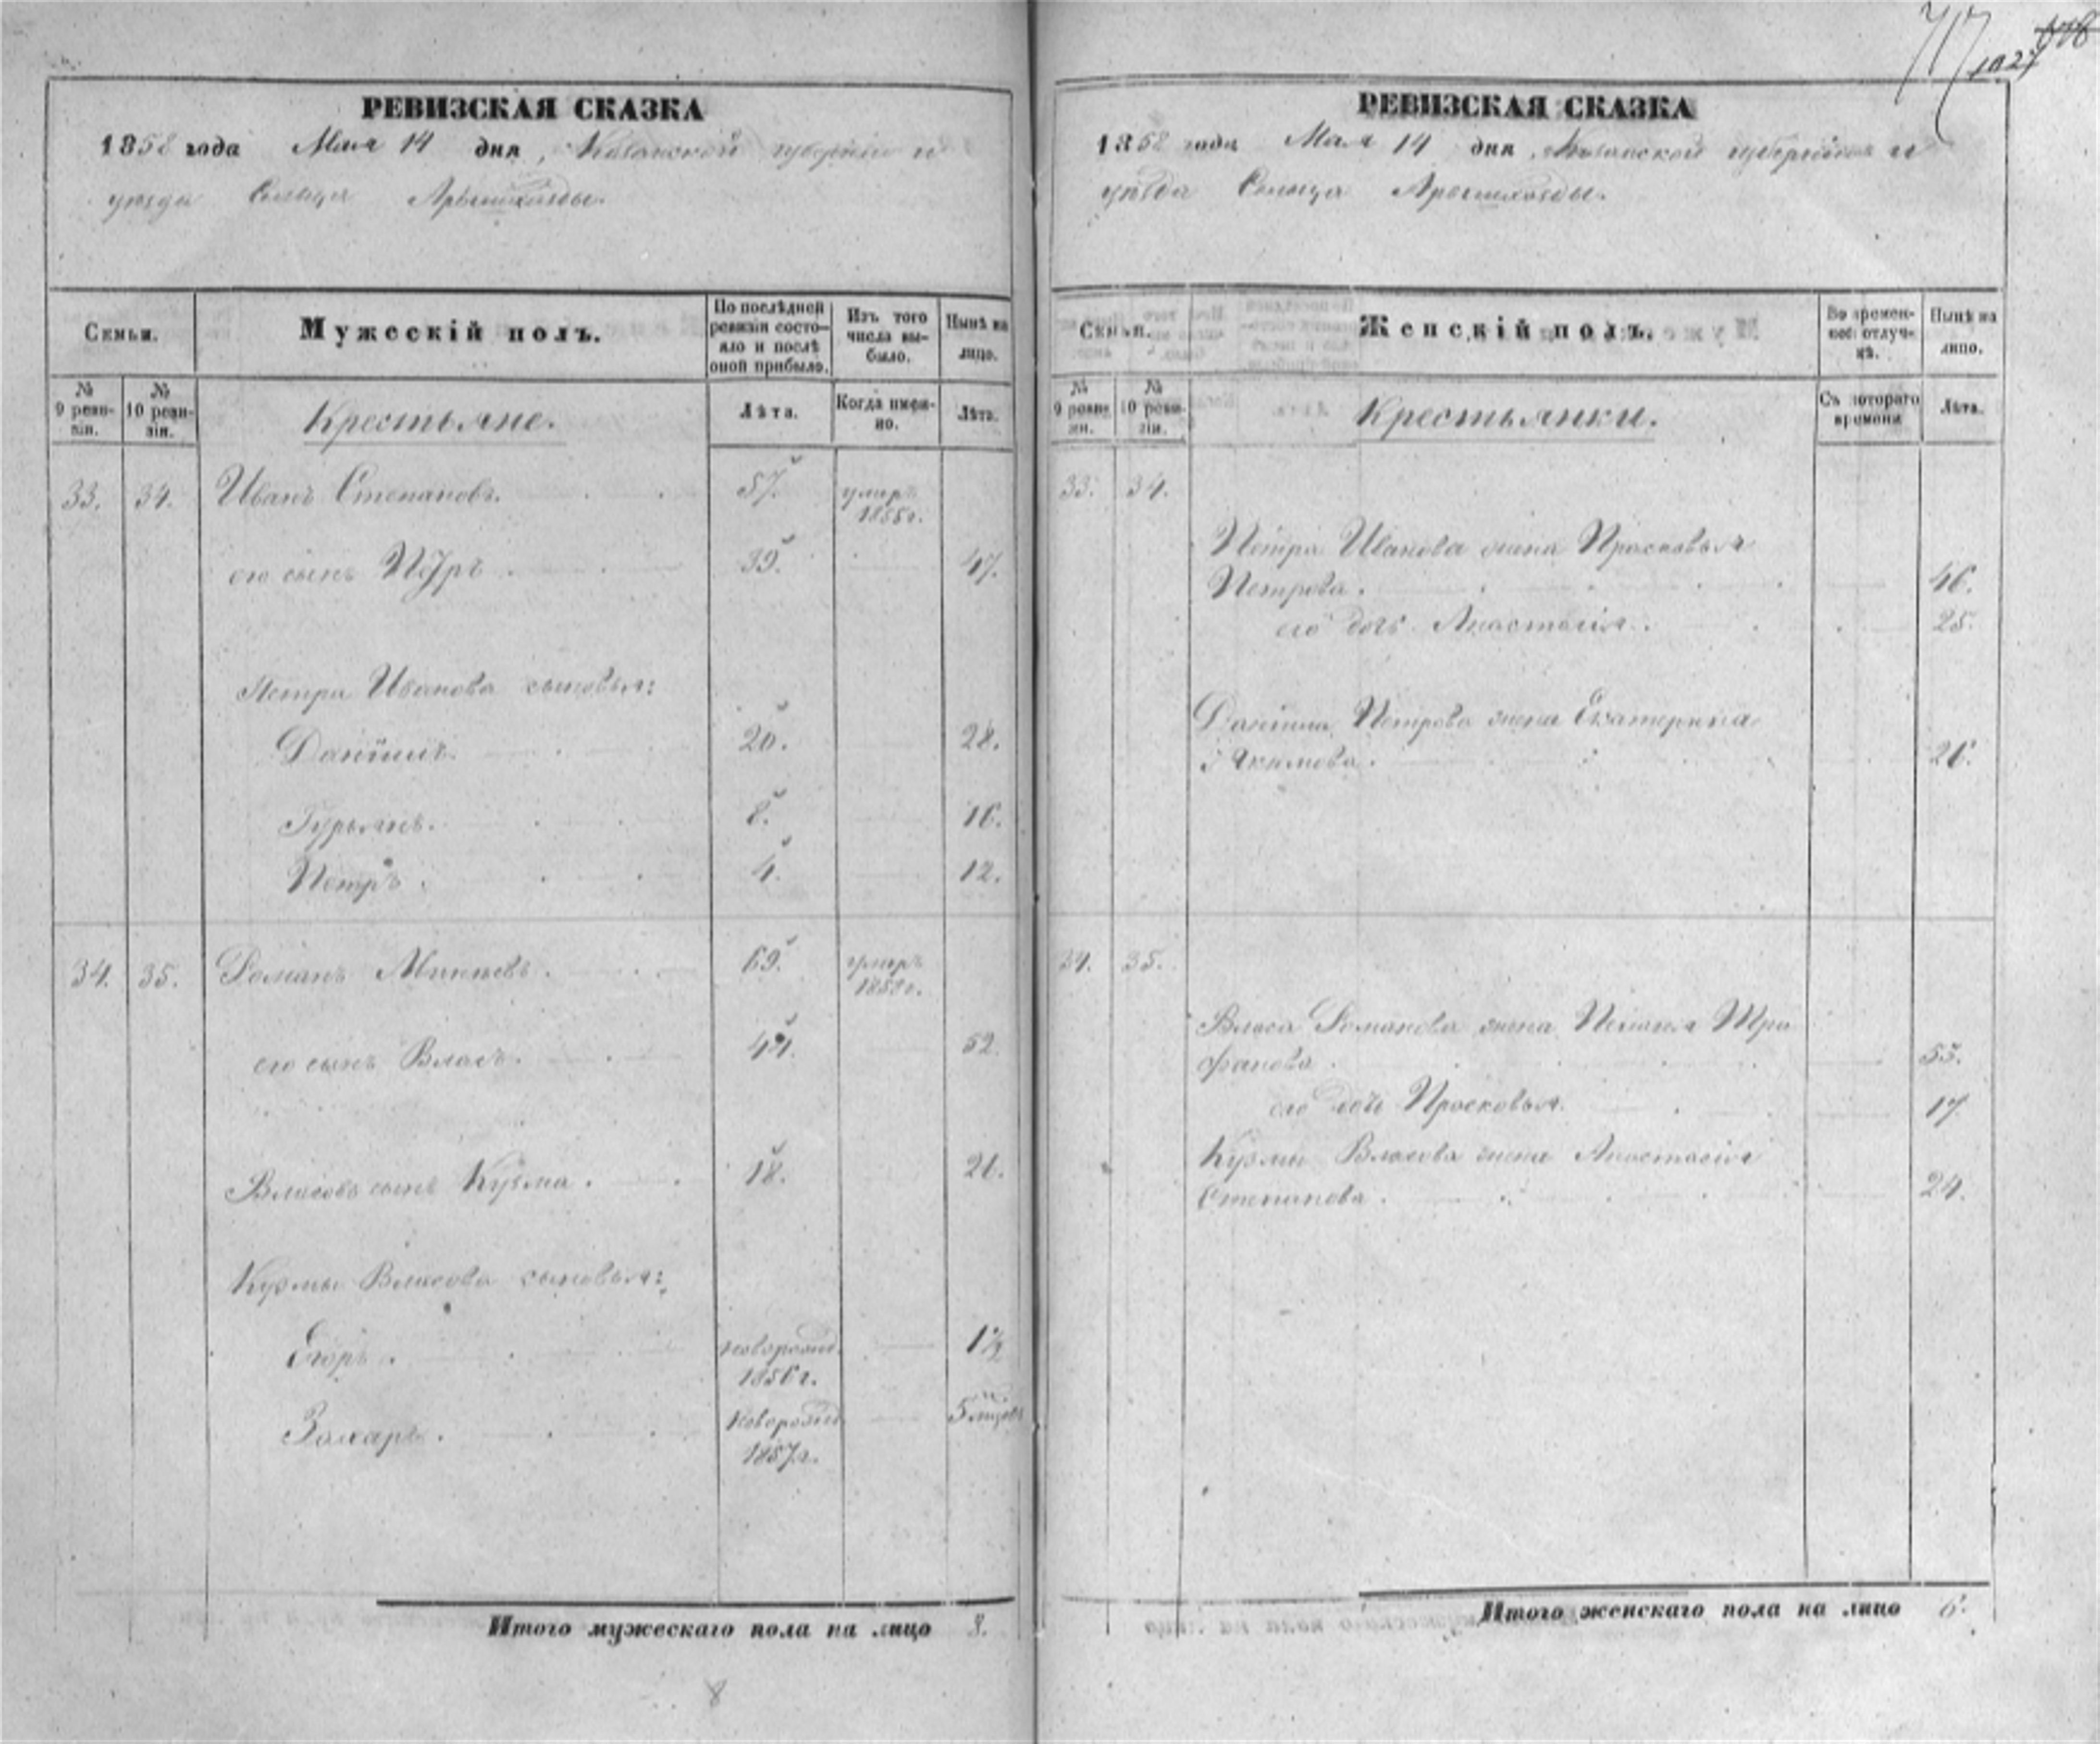 717
1027
РЕВИЗСКАЯ СКАЗКА
1858 года Мая 14 дня, Казанской губерніи и
уѣзда Сельца
Семьи.
Мужескій полъ.
По послѣдней ревизіи состояло и послѣ оной прибыло.
Изъ того числа выбыло.
Нынѣ на лицо.
№ 9 ревизіи.
№ 10 ревизіи.
Крестьяне.
Лѣта.
Когда именно.
Лѣта.
33. 34. Иванъ Степановъ. 57. умеръ 1855 г.
его сынъ Петръ. 39. 47.
Петра Иванова сыновья:
Даніилъ. 20. 28.
Гурьянъ. 8. 16.
Петръ. 4. 12.
34. 35. Романъ 69. умеръ
его сынъ Власъ. 44. 52.
Власовъ сынъ Кузма. 18. 26.
Кузмы Власова сыновья:
Егоръ. новорожд. 1856 г. 1½
Захаръ. новорожд. 1857 г. 5 мѣсяц.
Итого мужескаго пола на лицо 8.
8
РЕВИЗСКАЯ СКАЗКА
1858 года Мая 14 дня, Казанской губерніи и
уѣзда Сельца
Семьи.
Женскій полъ.
Во временной отлучкѣ.
Нынѣ на лицо.
№ 9 ревизіи.
№ 10 ревизіи.
Крестьянки.
Съ котораго времени
Лѣта.
33. 34.
Петра Иванова жена Прасковья
Петрова. 46.
его дочь Анастасія. 25.
Даніила Петрова жена Екатерина
Якимова. 26.
34. 35.
Власа Романова жена Пелагія Три
фанова. 55.
его дочь Просковья. 17
Кузмы Власова жена Анастасія
Степанова. 24.
Итого женскаго пола на лицо 6.